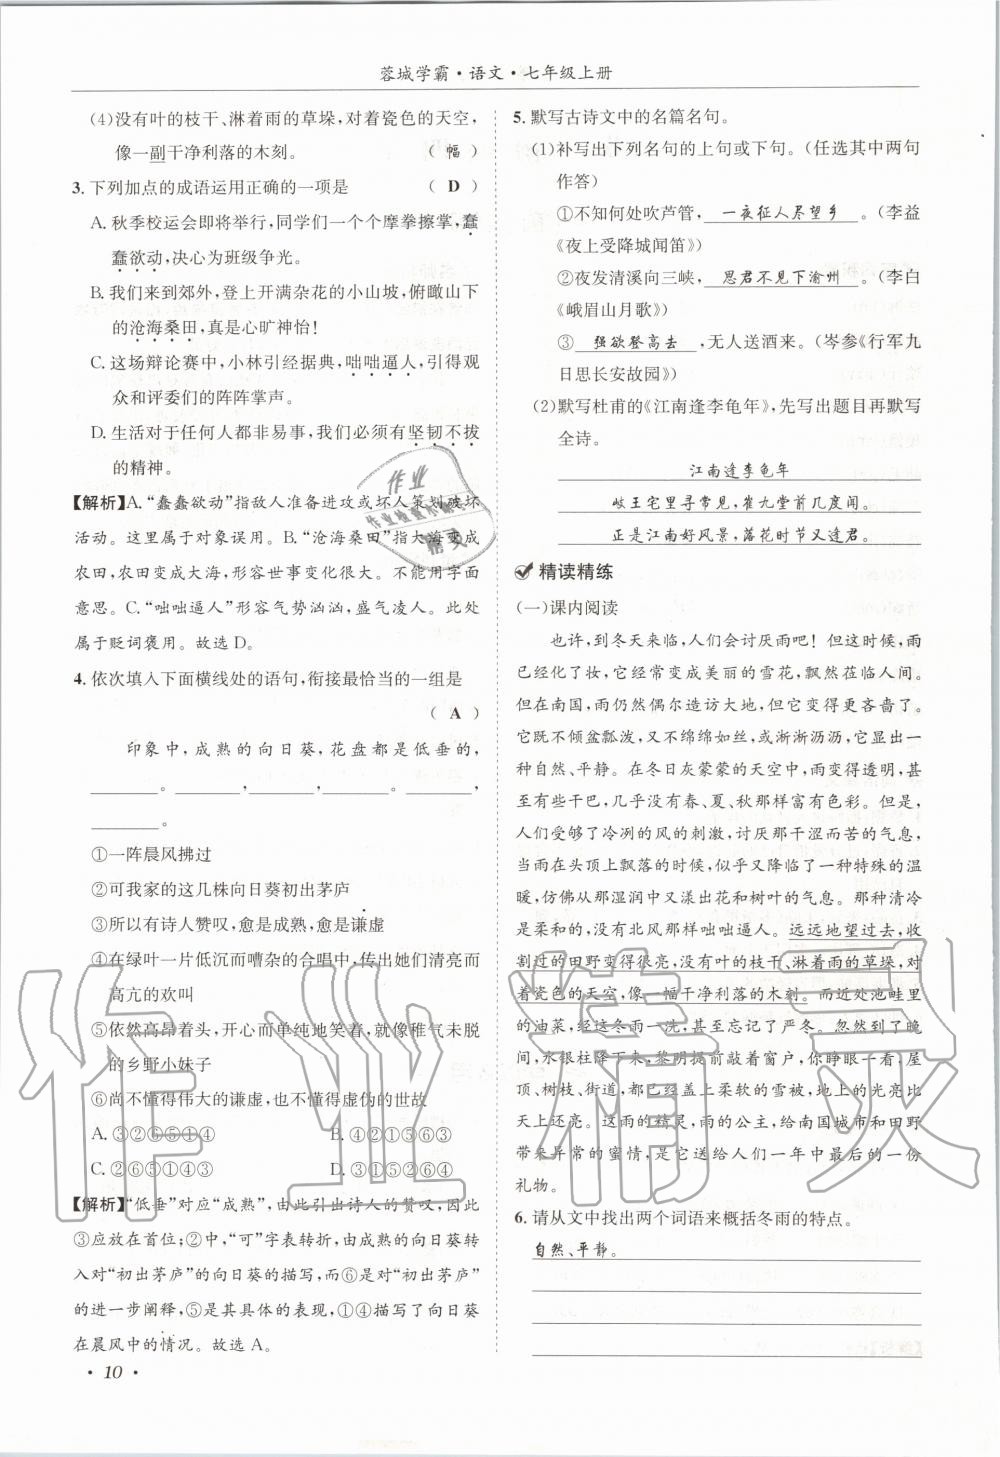 蓉城学霸·语文·七年级上册
(4)没有叶的枝干、淋着雨的草垛,对着瓷色的天空,
像一副干净利落的木刻。 ( 幅 )
3.下列加点的成语运用正确的一项是 ( D )
A.秋季校运会即将举行,同学们一个个摩拳擦掌,蠢
蠢欲动,决心为班级争光。
B.我们来到郊外,登上开满杂花的小山坡,俯瞰山下
的沧海桑田,真是心旷神怡!
C.这场辩论赛中,小林引经据典,咄咄逼人,引得观
众和评委们的阵阵掌声。
D.生活对于任何人都非易事,我们必须有坚韧不拔
的精神。
【解析】A.“蠢蠢欲动”指敌人准备进攻或坏人策划破坏
活动。这里属于对象误用。B.“沧海桑田”指大海变成
农田,农田变成大海,形容世事变化很大。不能用字面
意思。C.“咄咄逼人”形容气势汹汹,盛气凌人。此处
属于贬词褒用。故选D。
4.依次填入下面横线处的语句,衔接最恰当的一组是
( A )
印象中,成熟的向日葵,花盘都是低垂的,
________。________,________,________,________,
________。
①一阵晨风拂过
②可我家的这几株向日葵初出茅庐
③所以有诗人赞叹,愈是成熟,愈是谦虚
④在绿叶一片低沉而嘈杂的合唱中,传出她们清亮而
高亢的欢叫
⑤依然高昂着头,开心而单纯地笑着,就像稚气未脱
的乡野小妹子
⑥尚不懂得伟大的谦虚,也不懂得虚伪的世故
A.③②⑥⑤①④ B.④②①⑤⑥③
C.②⑥⑤①④③ D.③①⑤②⑥④
【解析】“低垂”对应“成熟”,由此引出诗人的赞叹,故
③应放在首位;②中,“可”字表转折,由成熟的向日葵
转入对“初出茅庐”的向日葵的描写,而⑥是对“初出茅庐”
的进一步阐释,⑤是其具体的表现,①④描写了向日葵
在晨风中的情况。故选A。
· 10 ·
5.默写古诗文中的名篇名句。
(1)补写出下列名句的上句或下句。(任选其中两句
作答)
①不知何处吹芦管, 一夜征人尽望乡 。(李益
《夜上受降城闻笛》)
②夜发清溪向三峡, 思君不见下渝州 。(李白
《峨眉山月歌》)
③ 强欲登高去 ,无人送酒来。(岑参《行军九
日思长安故园》)
(2)默写杜甫的《江南逢李龟年》,先写出题目再默写
全诗。
江南逢李龟年
岐王宅里寻常见,崔九堂前几度闻。
正是江南好风景,落花时节又逢君。
精读精练
(一)课内阅读
也许,到冬天来临,人们会讨厌雨吧!但这时候,雨
已经化了妆,它经常变成美丽的雪花,飘然莅临人间。
但在南国,雨仍然偶尔造访大地,但它变得更吝啬了。
它既不倾盆瓢泼,又不绵绵如丝,或淅淅沥沥,它显出一
种自然、平静。在冬日灰蒙蒙的天空中,雨变得透明,甚
至有些干巴,几乎没有春、夏、秋那样富有色彩。但是,
人们受够了冷冽的风的刺激,讨厌那干涩而苦的气息,
当雨在头顶上飘落的时候,似乎又降临了一种特殊的温
暖,仿佛从那湿润中又漾出花和树叶的气息。那种清冷
是柔和的,没有北风那样咄咄逼人。远远地望过去,收
割过的田野变得很亮,没有叶的枝干、淋着雨的草垛,对
着瓷色的天空,像一幅干净利落的木刻。而近处池畦里
的油菜,经这冬雨一洗,甚至忘记了严冬。忽然到了晚
间,水银柱降下来,黎明提前敲着窗户,你睁眼一看,屋
顶、树枝、街道,都已经盖上柔软的雪被,地上的光亮比
天上还亮。这雨的精灵,雨的公主,给南国城市和田野
带来异常的蜜情,是它送给人们一年中最后的一份
礼物。
6.请从文中找出两个词语来概括冬雨的特点。
自然、平静。
作业精灵
作业
作业检查小帮手
精灵